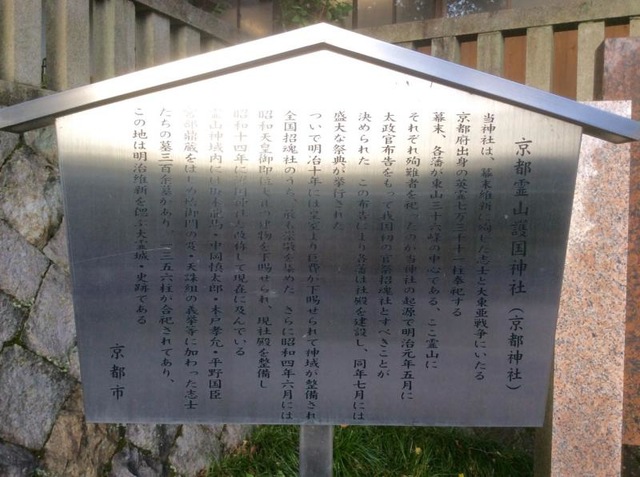 京都霊山護国神社(京都神社)
当神社は、幕末維新に殉した志士と大東亜戦争にいたる
京都府出身の英霊七万三千十一柱奉祀する
幕末、各藩が東山三十六峰の中心である、ここ霊山に
それぞれ殉難者を祀ったのが当神社の起源で明治元年五月に
太政官布告をもって我国初の官祭招魂社とすべきことが
決められた この布告により各藩は社殿を建設し、同年七月には
盛大な祭典が挙行された
ついで明治十年には皇室より巨費が下賜せられて神域が整備され
全国招魂社のうち、最も崇敬を集めた さらに昭和四年六月には
昭和天皇御即位の建物を下賜せられ、現社殿を整備し
昭和十四年に護国神社と改称して現在に及んでいる
霊山神域内には坂本龍馬・中岡慎太郎・木戸孝允・平野国臣
宮部鼎蔵をはじめ蛤御門の変・天誅組の義挙等に加わった志士
たちの墓三百余墓があり、一三五六柱が合祀されてあり、
この地は明治維新を偲ぶ大霊域・史跡である
京都市